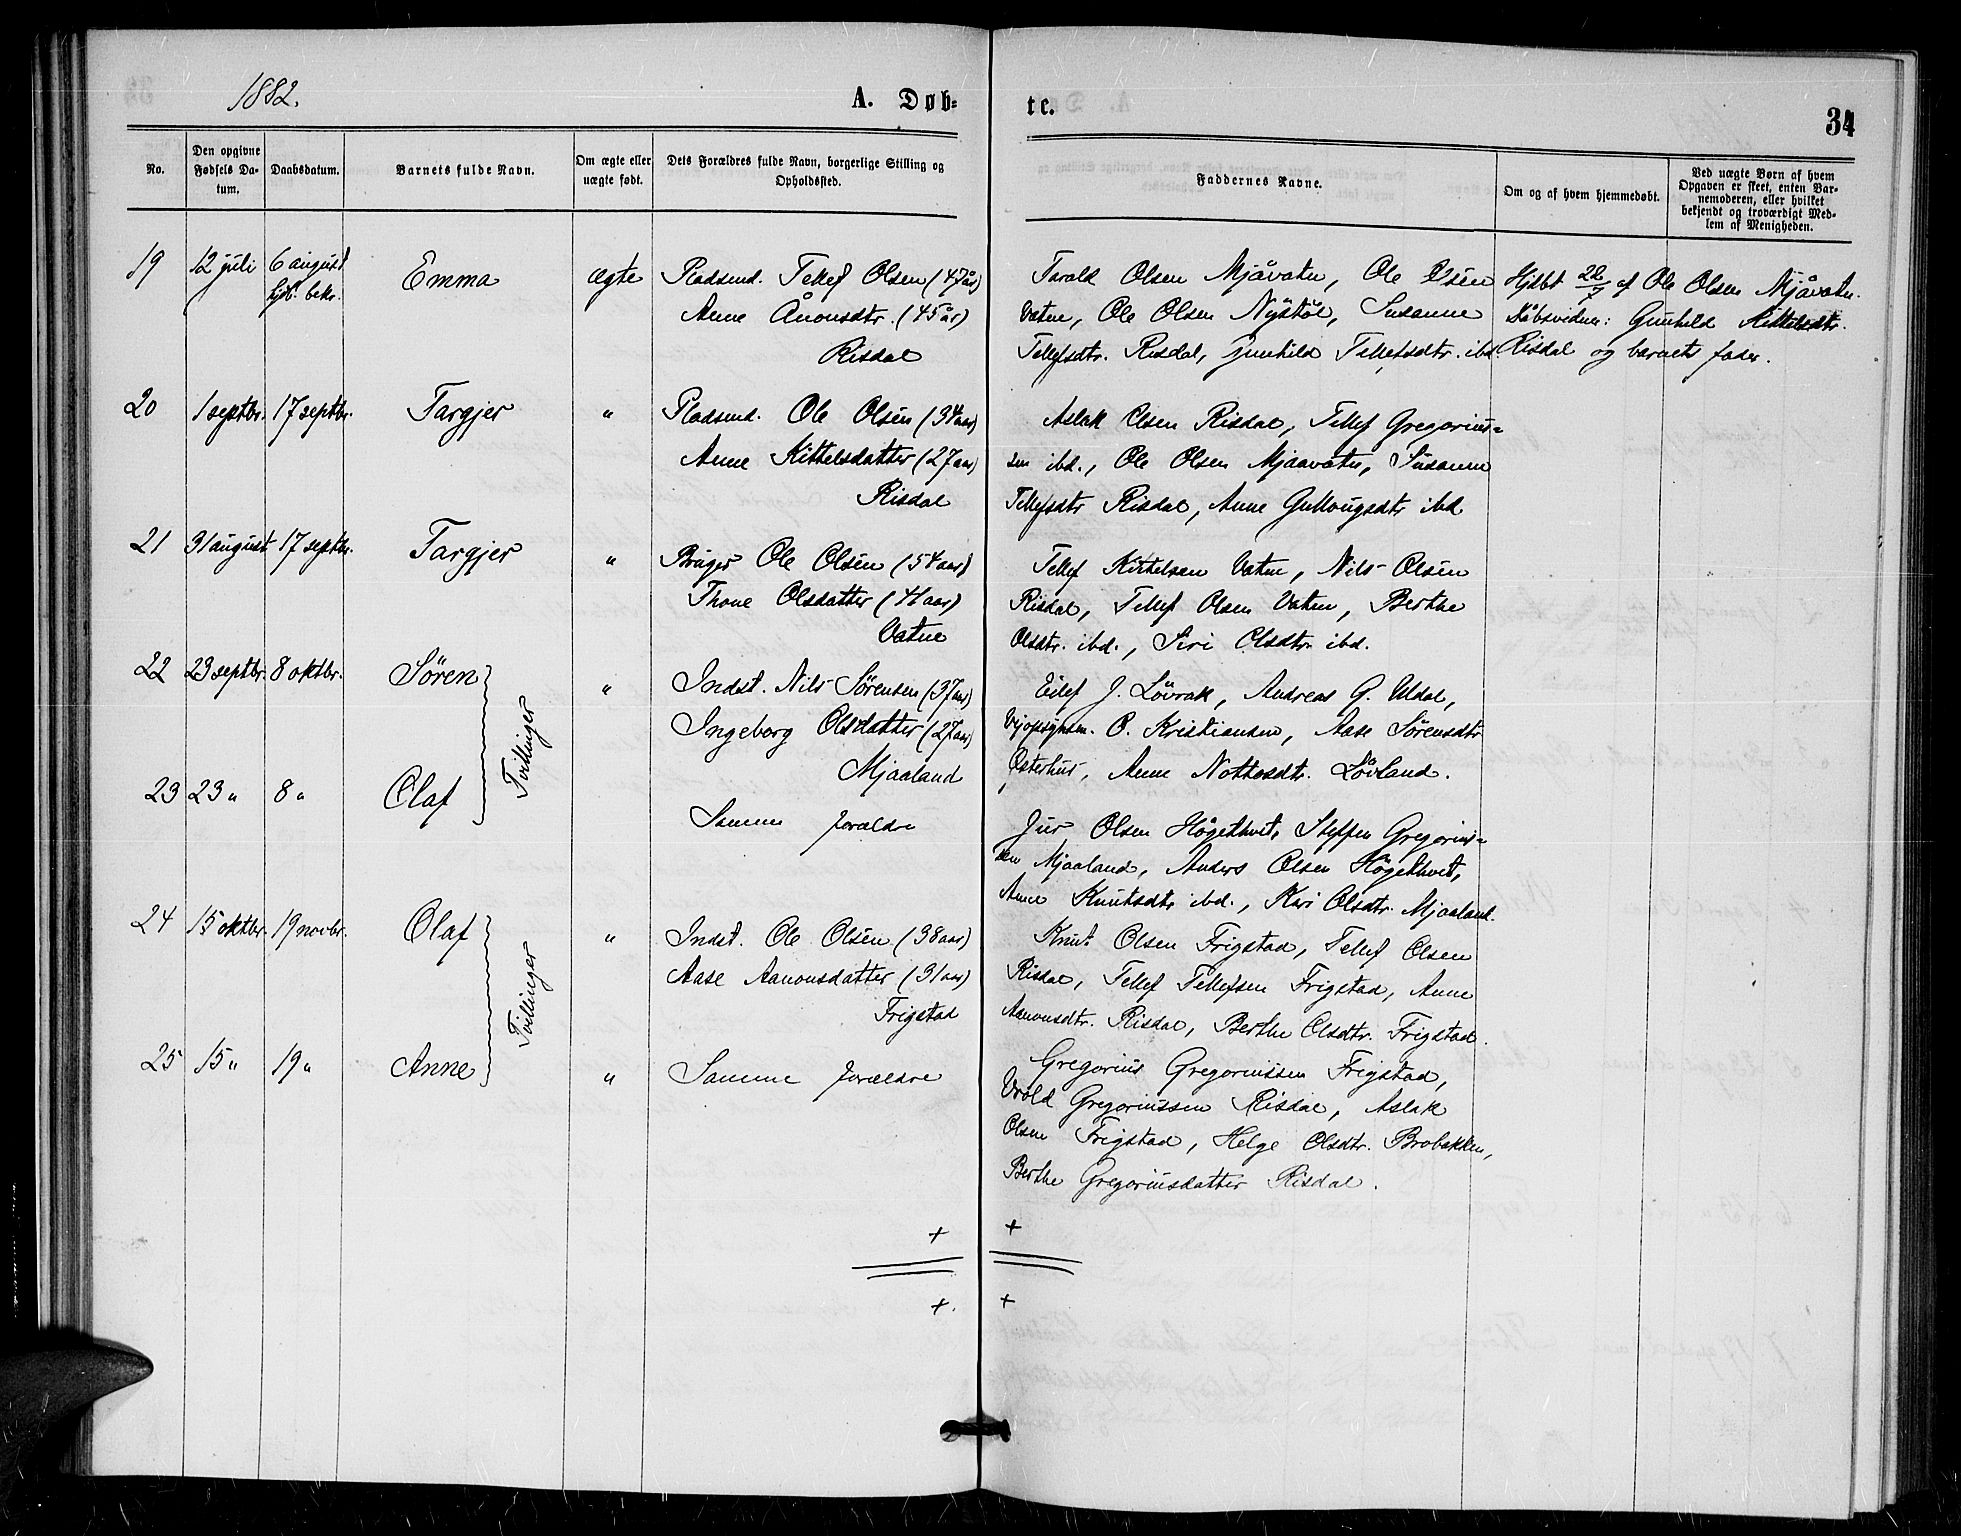 1882.
A. Døb-
te.
34
No.
Den opgivne Fødsels Da-tum.
Daabsdatum.
Barnets fulde Navn.
Om ægte eller uægte født.
Dets Forældres fulde Navn, borgerlige Stilling og Opholdssted.
Faddernes Navne.
Om og af hvem hjemmedøbt.
Ved uægte Børn af hvem Opgaven er skeet, enten Bar-nemoderen, eller hvilket bekjendt og troværdigt Med-lem af Menigheden.
19 12 juli 6 august Emma ægte Pladsmd. Tellef Olsen (47 år)
hjb. bekr.
Anne Ånonsdtr. (45 år)
Risdal
Tarald Olsen Mjåvatn, Ole Olsen
Vatne, Ole Olsen Nystöl, Susanne
Tellefsdtr. Risdal, Gunhild Tellefsdtr. ibd.
Hjdbt 22/7 af Ole Olsen Mjåvatn.
Dåbsvidner: Gunhild Kittelsdtr.
Risdal og barnets fader.
20 1 septbr. 17 septbr. Targjer " Pladsmd. Ole Olsen (34 aar)
Anne Kittelsdatter (27 aar)
Risdal
Aslak Olsen Risdal, Tellef Gregorius-
sen ibd., Ole Olsen Mjaavatn, Susanne
Tellefsdtr Risdal, Anne Gullougsdtr ibd
21 31 august 17 septbr. Targjer " Bruger Ole Olsen (54 aar)
Thone Olsdatter (41 aar)
Vatne
Tellef Kittelsen Vatne, Nils Olsen
Risdal, Tellef Olsen Vatne, Berthe
Olsdtr. ibd., Siri Olsdtr. ibd.
22 23 septbr. 8 oktbr. Sören " Indst. Nils Sörensen (37 aar)
Tvillinger
Ingeborg Olsdatter (27 aar)
Mjaaland
Eilef J. Lövrak, Andreas G. Uldal,
Vejopsynsm. O. Kristiansen, Aase Sörensdtr
Osterhus, Anne Nottosdtr. Lövland.
23 23 " 8 " Olaf
Samme forældre
Jur Olsen Högethvet, Steffen Gregorius-
sen Mjaaland, Anders Olsen Högethvet,
Anne Knutsdtr ibd., Kari Olsdtr. Mjaaland.
24 15 oktbr. 19 novbr. Olaf " Indst. Ole Olsen (38 aar)
Tvillinger
Aase Aanonsdatter (31 aar)
Frigstad
Knut Olsen Frigstad, Tellef Olsen
Risdal, Tellef Tellefsen Frigstad, Anne
Aanonsdtr. Risdal, Berthe Olsdtr. Frigstad.
25 15 " 19 " Anne " Samme forældre
Gregorius Gregoriussen Frigstad,
Vrold Gregoriussen Risdal, Aslak
Olsen Frigstad, Helge Olsdtr. Brobakken,
Berthe Gregoriusdatter Risdal.
+ +
+. +